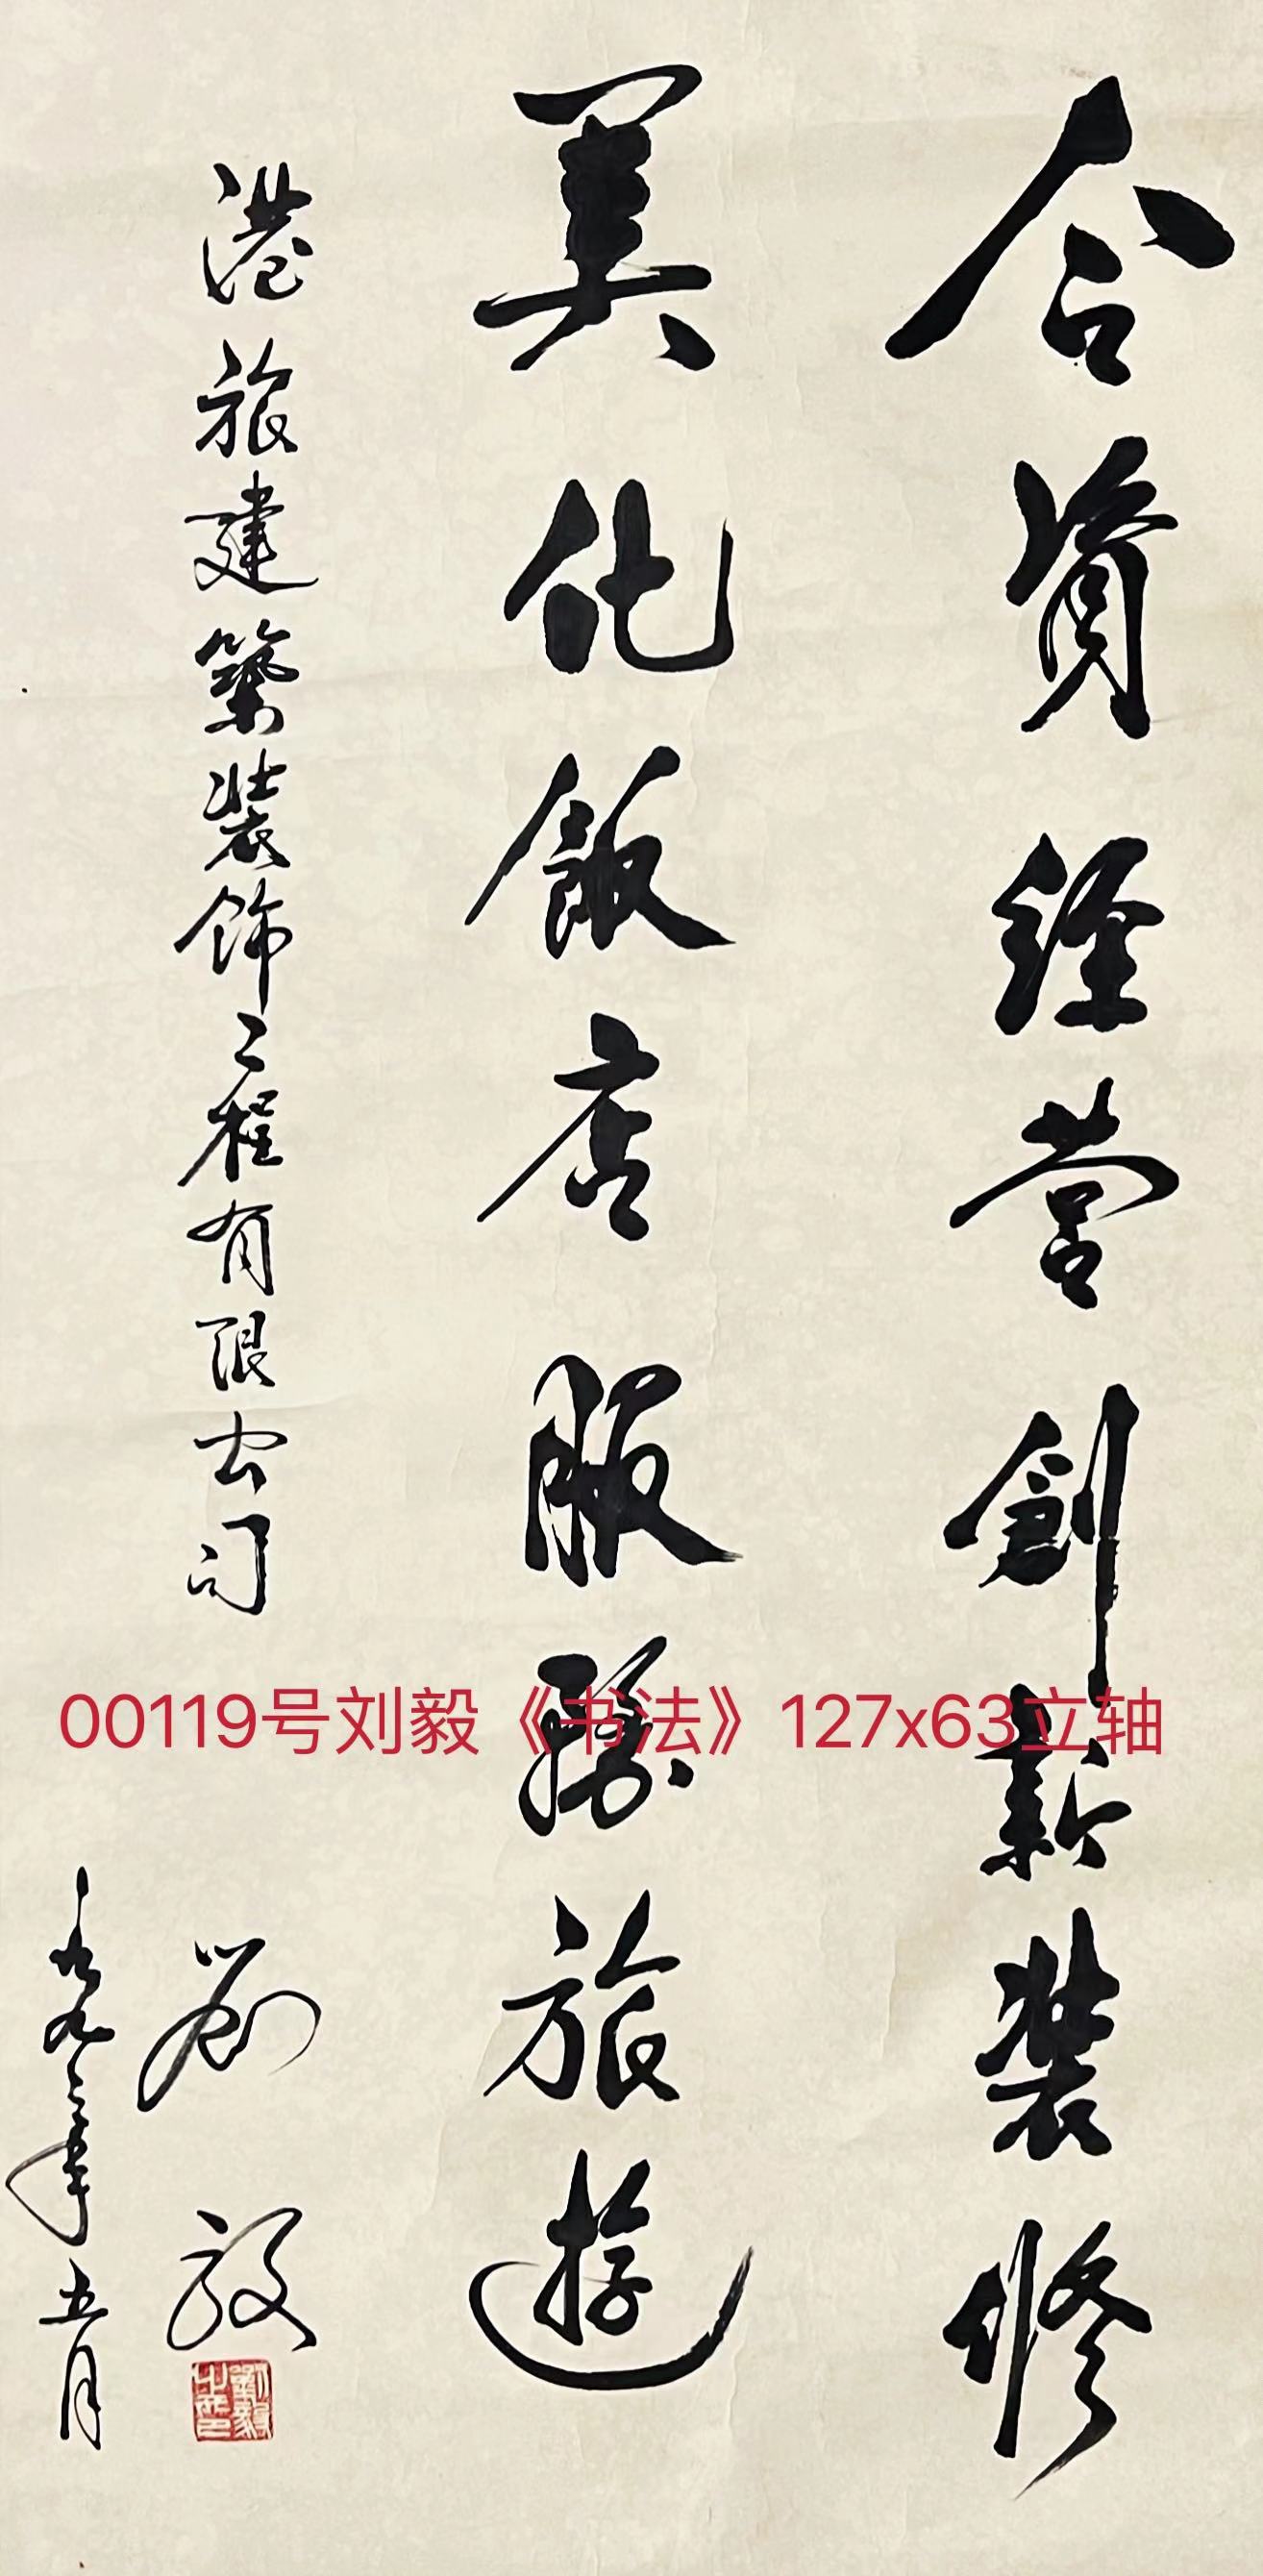 合資經营創新装修
美化飯店服務旅遊
港旅建築装飾工程有限公司
劉毅
一九九三年五月
劉毅之印
00119号刘毅《书法》127x63立轴